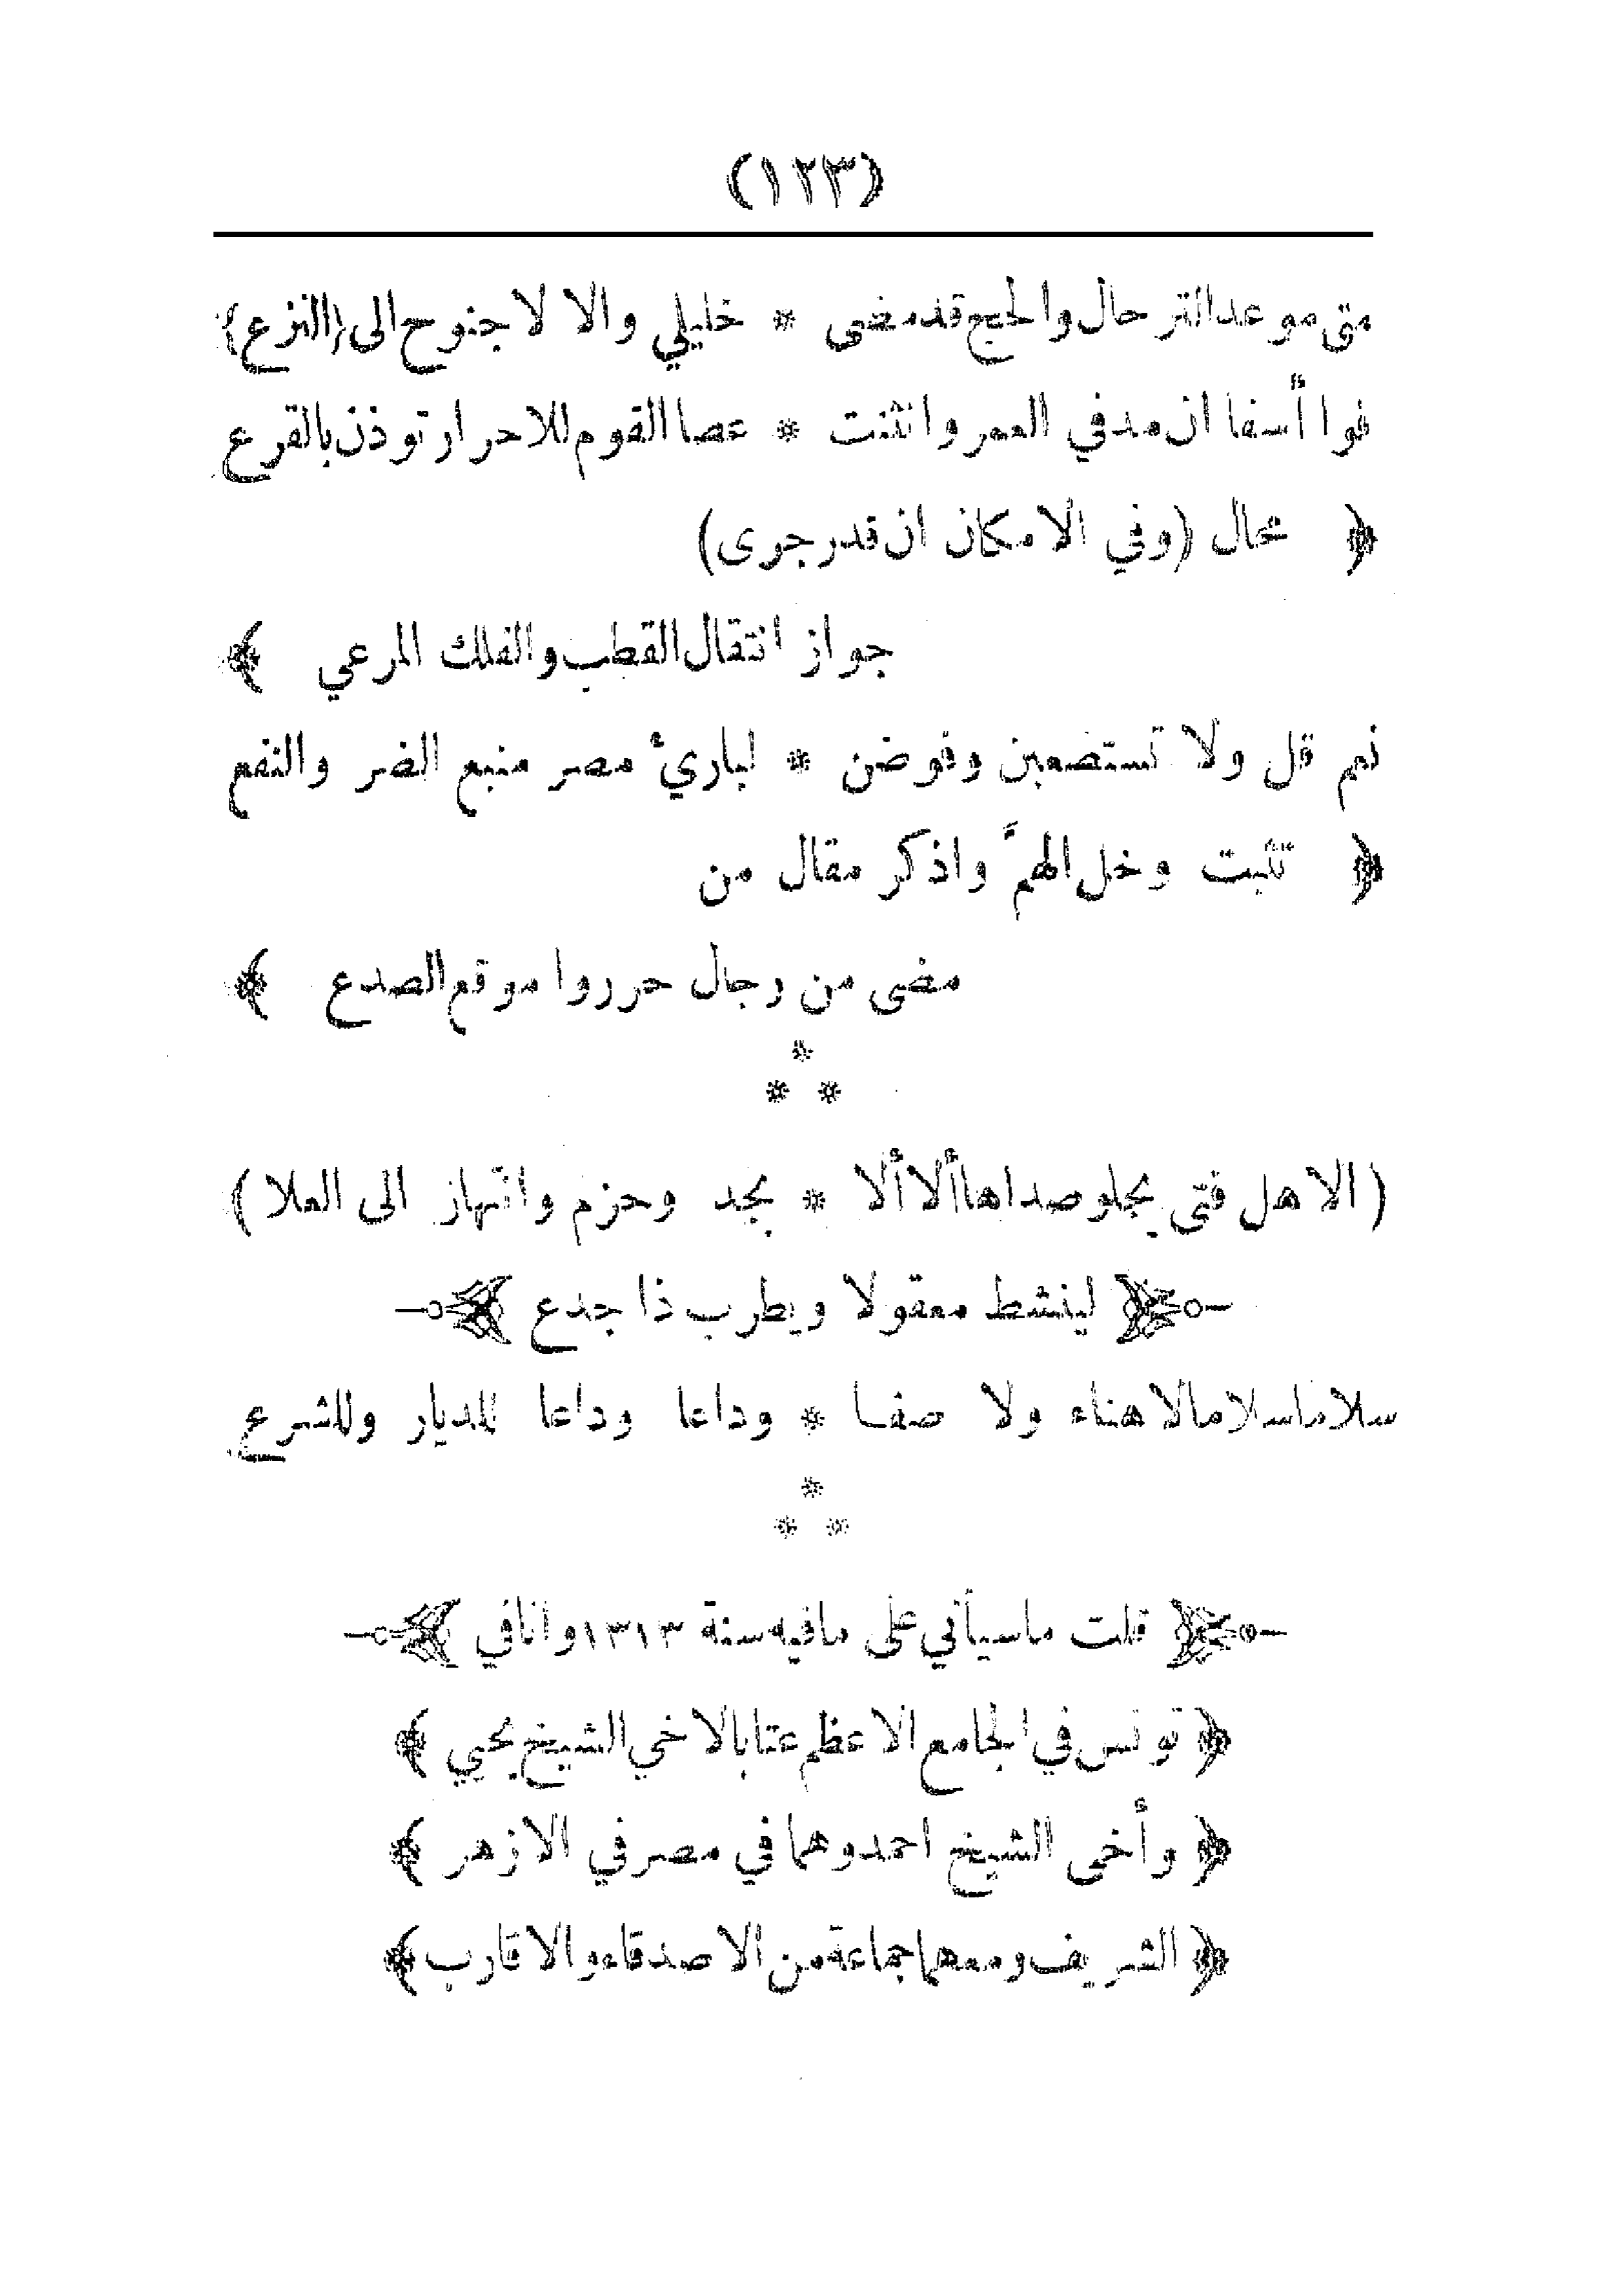 (١٢٣)
متى موعد الترحال والحج قد مضى * خليلي والا لا جنوح الى (النزع)
فوا أسفا ان مد في العمر وانثنت * عصا القوم للاحرار توذن بالقرع
﴿ محال (وفي الامكان ان قدر جرى)
جواز انتقال القطب والفلك المرعي ﴾
نعم قل ولا تستضعبن وفوضن * لباريء مصر منبع الضر والنفع
﴿ تثبت وخل الهمَّ واذكر مقال من
مضى من رجال حرروا موقع الصدع ﴾
*
* *
(الا هل فتى يجلو صداها ألا ألا * بجد وحزم وانتهاز الى العلا)
﴿ لينشط معقولا ويطرب ذا جدع ﴾
سلاما سلاما لا هناء ولا صفا * وداعا وداعا للديار وللشرع
*
* *
﴿ قلت ماسيأتي على مافيه سنة ١٣١٣ وانا في ﴾
﴿ تونس في الجامع الاعظم عتابا لاخي الشيخ يحيي ﴾
﴿ وأخى الشيخ احمد وهما في مصر في الازهر ﴾
﴿ الشريف ومعهما جماعة من الاصدقاء والاقارب ﴾